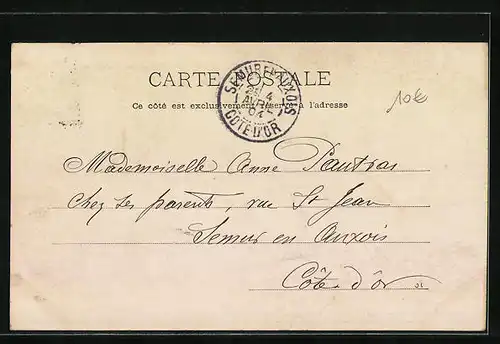 CARTE POSTALE
Ce côté est exclusivement réservé à l'adresse
SEMUR-EN-AUXOIS
4
AVRIL
04
COTE D'OR
10€
Mademoiselle Anne Pautras
Chez ses parents, rue St Jean
Semur en Auxois
Côte-d'or